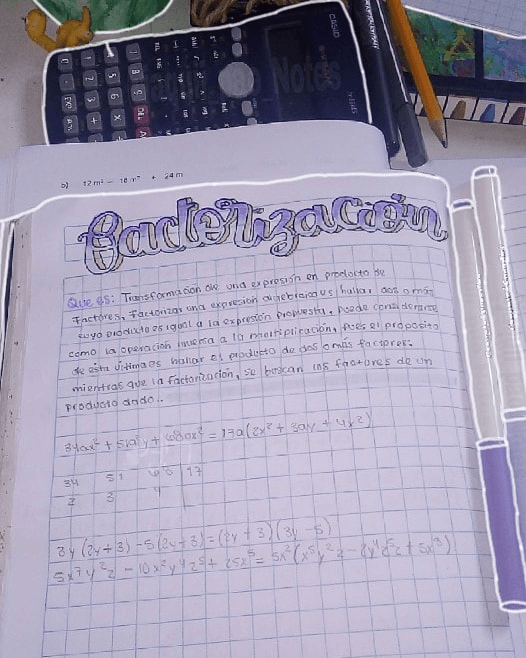 CASIO
b) 12m² - 18m³ + 24m
factorización
Que es: Transformación de una expresión en producto de
factores, factorizar una expresion algebraica es hallar dos o más
cuyo producto es igual a la expresión propuesta, puede considerarse
como la operación inversa a la multiplicación, pues el proposito
de esta última es hallar el producto de dos o más factores,
mientras que la factorización, se buscan los factores de un
producto dado..
34ax² + 51a²y + 68ax² = 17a(2x² + 3ay + 4x²)
34 51 17
2 3 4
3y(2y+3) - 5(2y+3) = (2y+3)(3y-5)